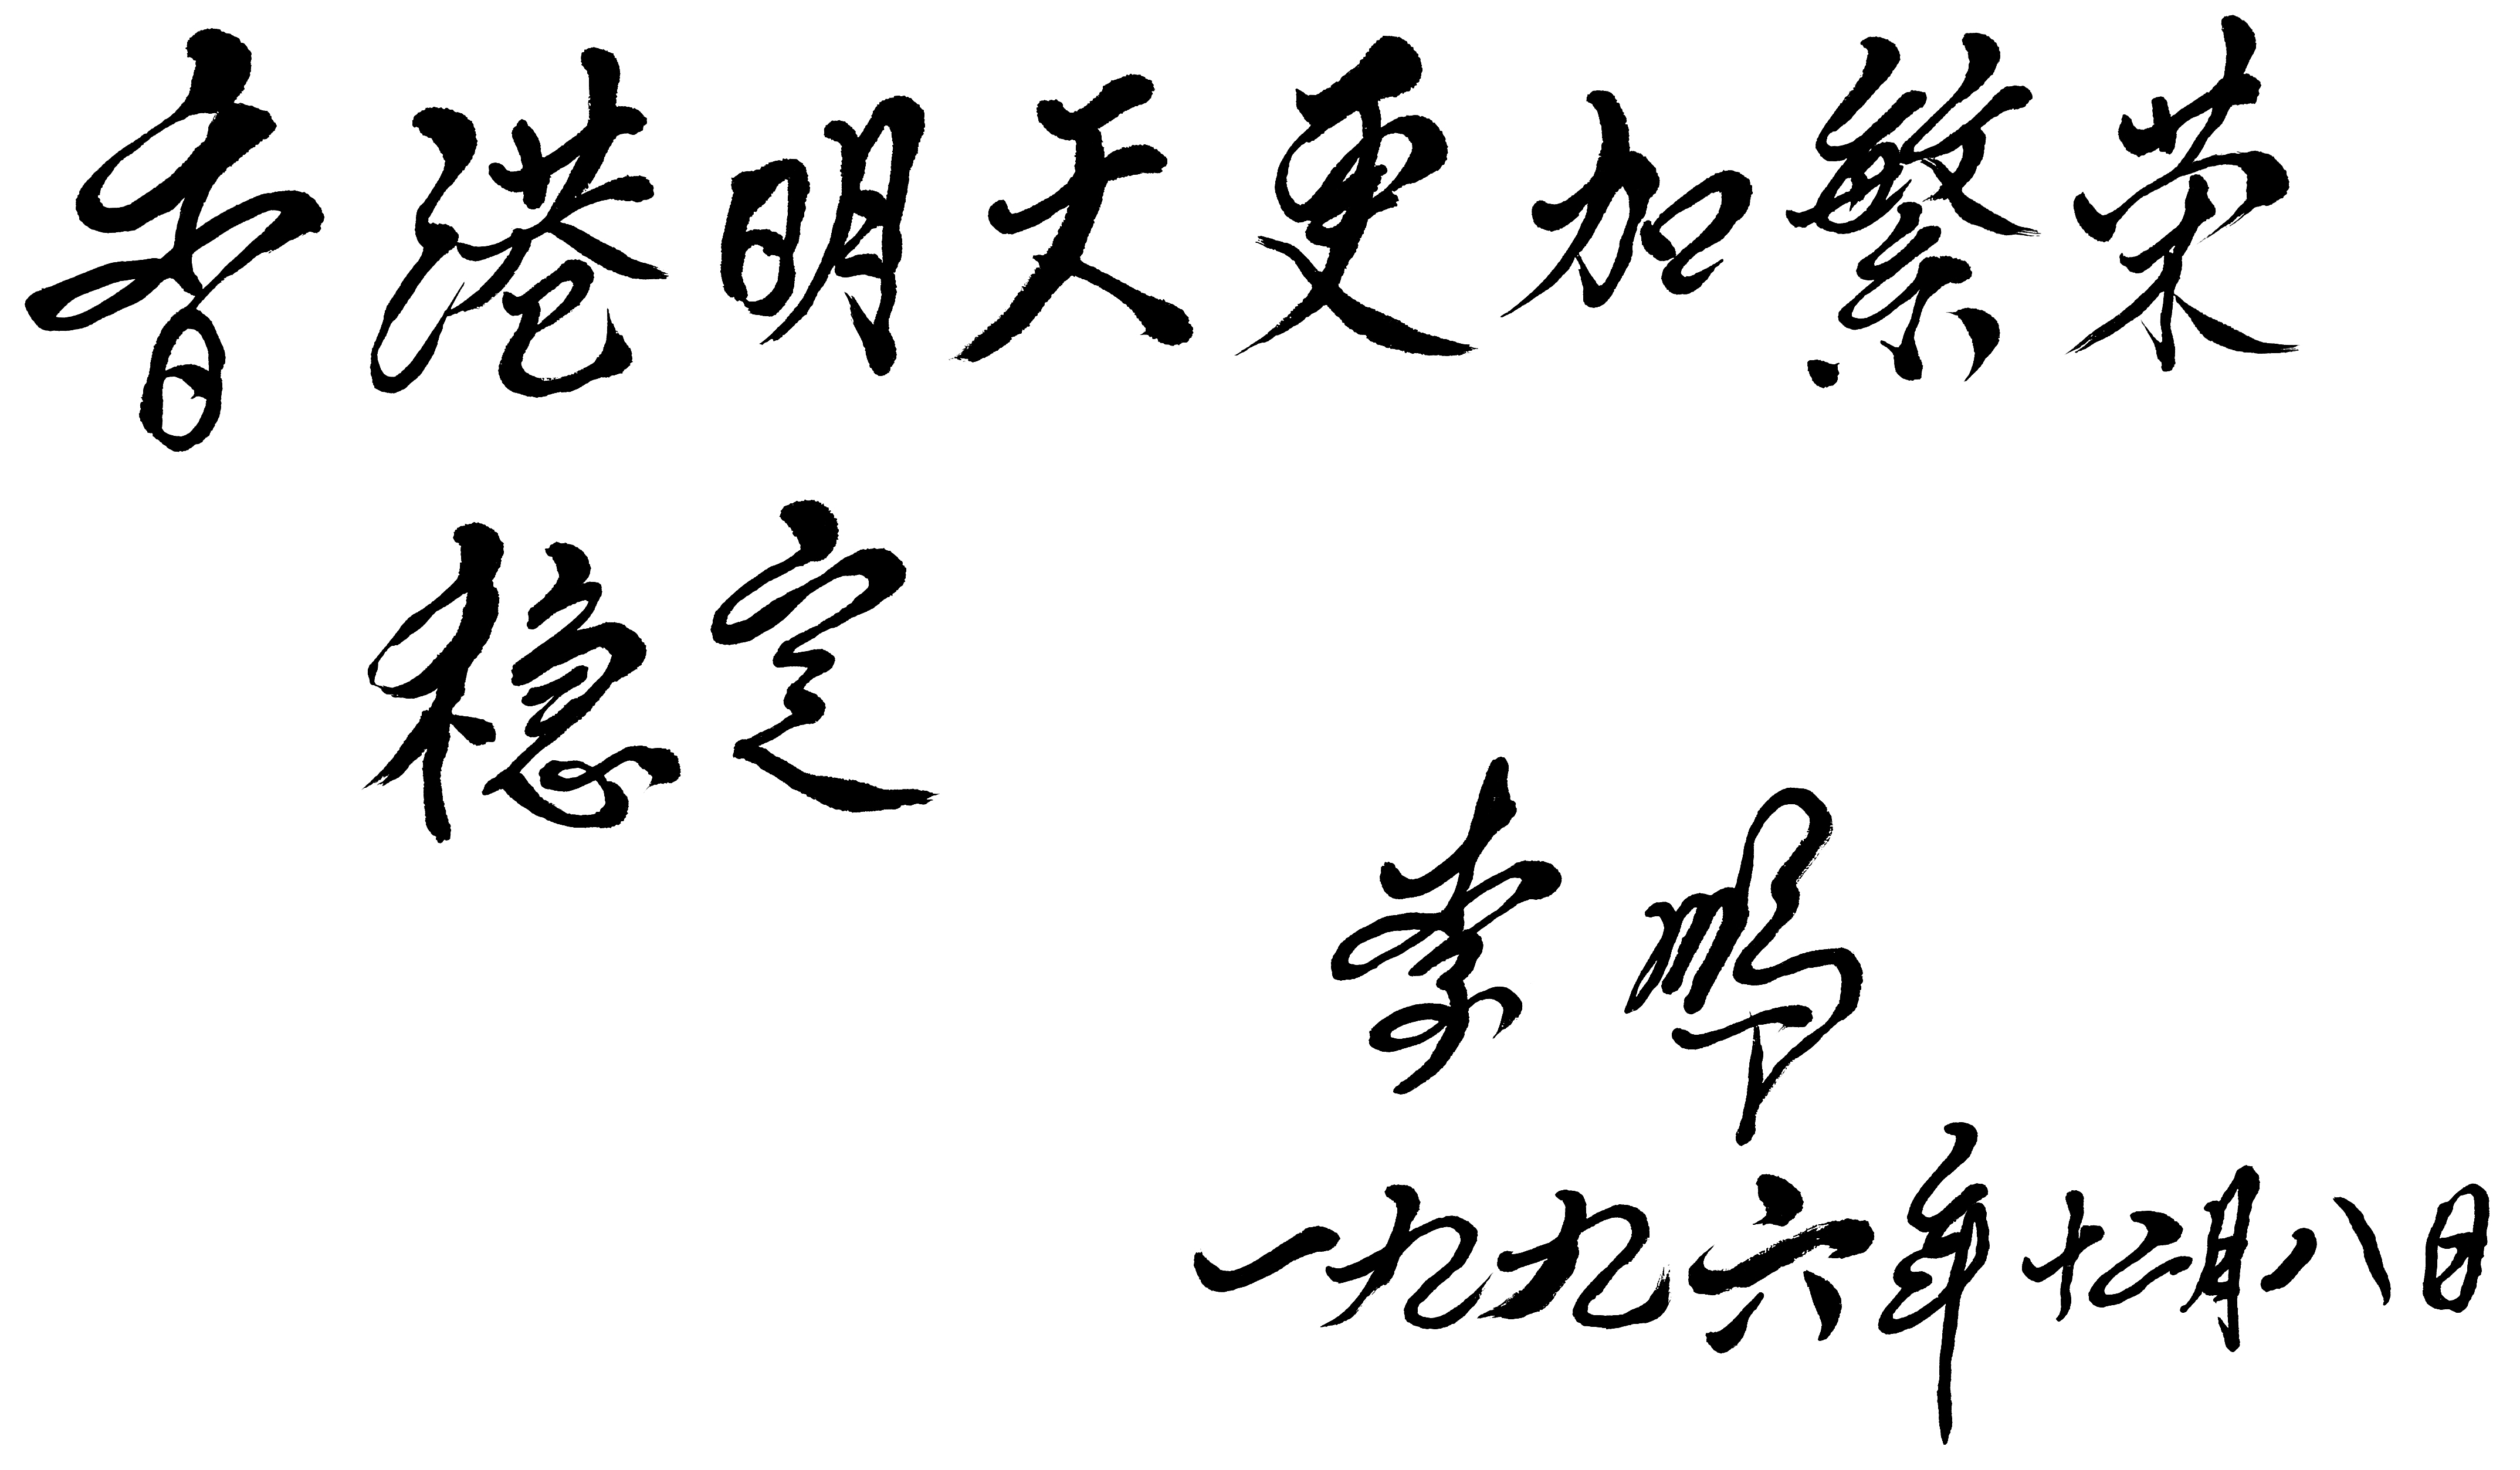 香港明天更加繁荣
稳定
李鹏
一九九六年十二月八日